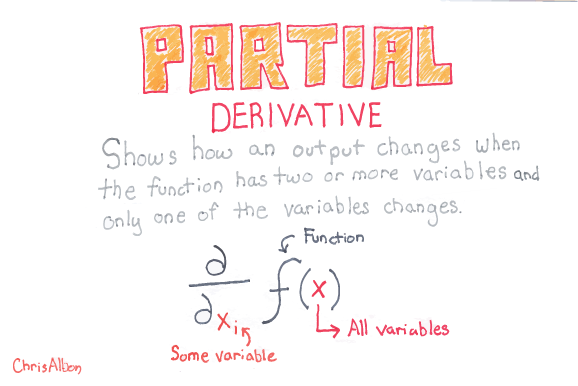 PARTIAL
DERIVATIVE
Shows how an output changes when
the function has two or more variables and
only one of the variables changes.
Function
∂
∂xᵢ f(x)
All variables
Some variable
ChrisAlbon